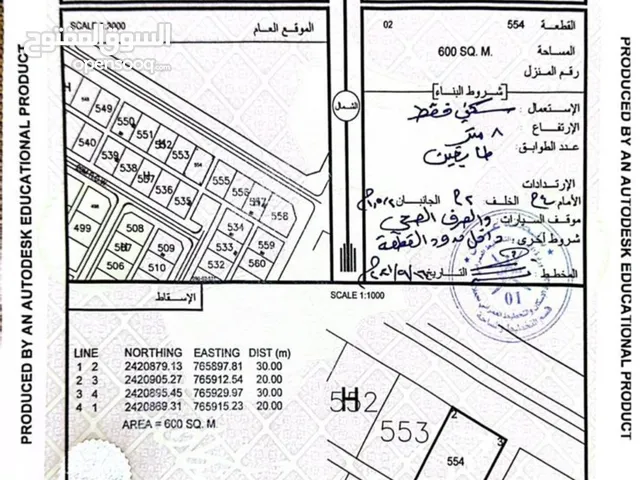 السوق المفتوح
opensooq.com
SCALE
الموقع العام
القطعة 554 02
المساحة 600 SQ. M.
رقم المنزل
شروط البناء
الإستعمال : سكني فقط
الإرتفاع : ٨ متر
عدد الطوابق: طابقين
الإرتدادات
الأمام ٤م الخلف ٢م الجانبان
موقف السيارات : والصرف الصحي
شروط أخرى : داخل حدود القطعة
المخطط التاريخ
الشمال
01
549
550
551
H
552
553
554
555
556
557
558
540
539
538
537
536
535
534
533
559
560
499
498
508
507
506
509
510
الإسقاط
SCALE 1:1000
LINE NORTHING EASTING DIST (m)
1 2 2420879.13 765897.81 30.00
2 3 2420905.27 765912.54 20.00
3 4 2420895.45 765929.97 30.00
4 1 2420869.31 765915.23 20.00
AREA = 600 SQ. M.
H
552
553
554
2
3
PRODUCED BY AN AUTODESK EDUCATIONAL PRODUCT
PRODUCED BY AN AUTODESK EDUCATIONAL PRODUCT